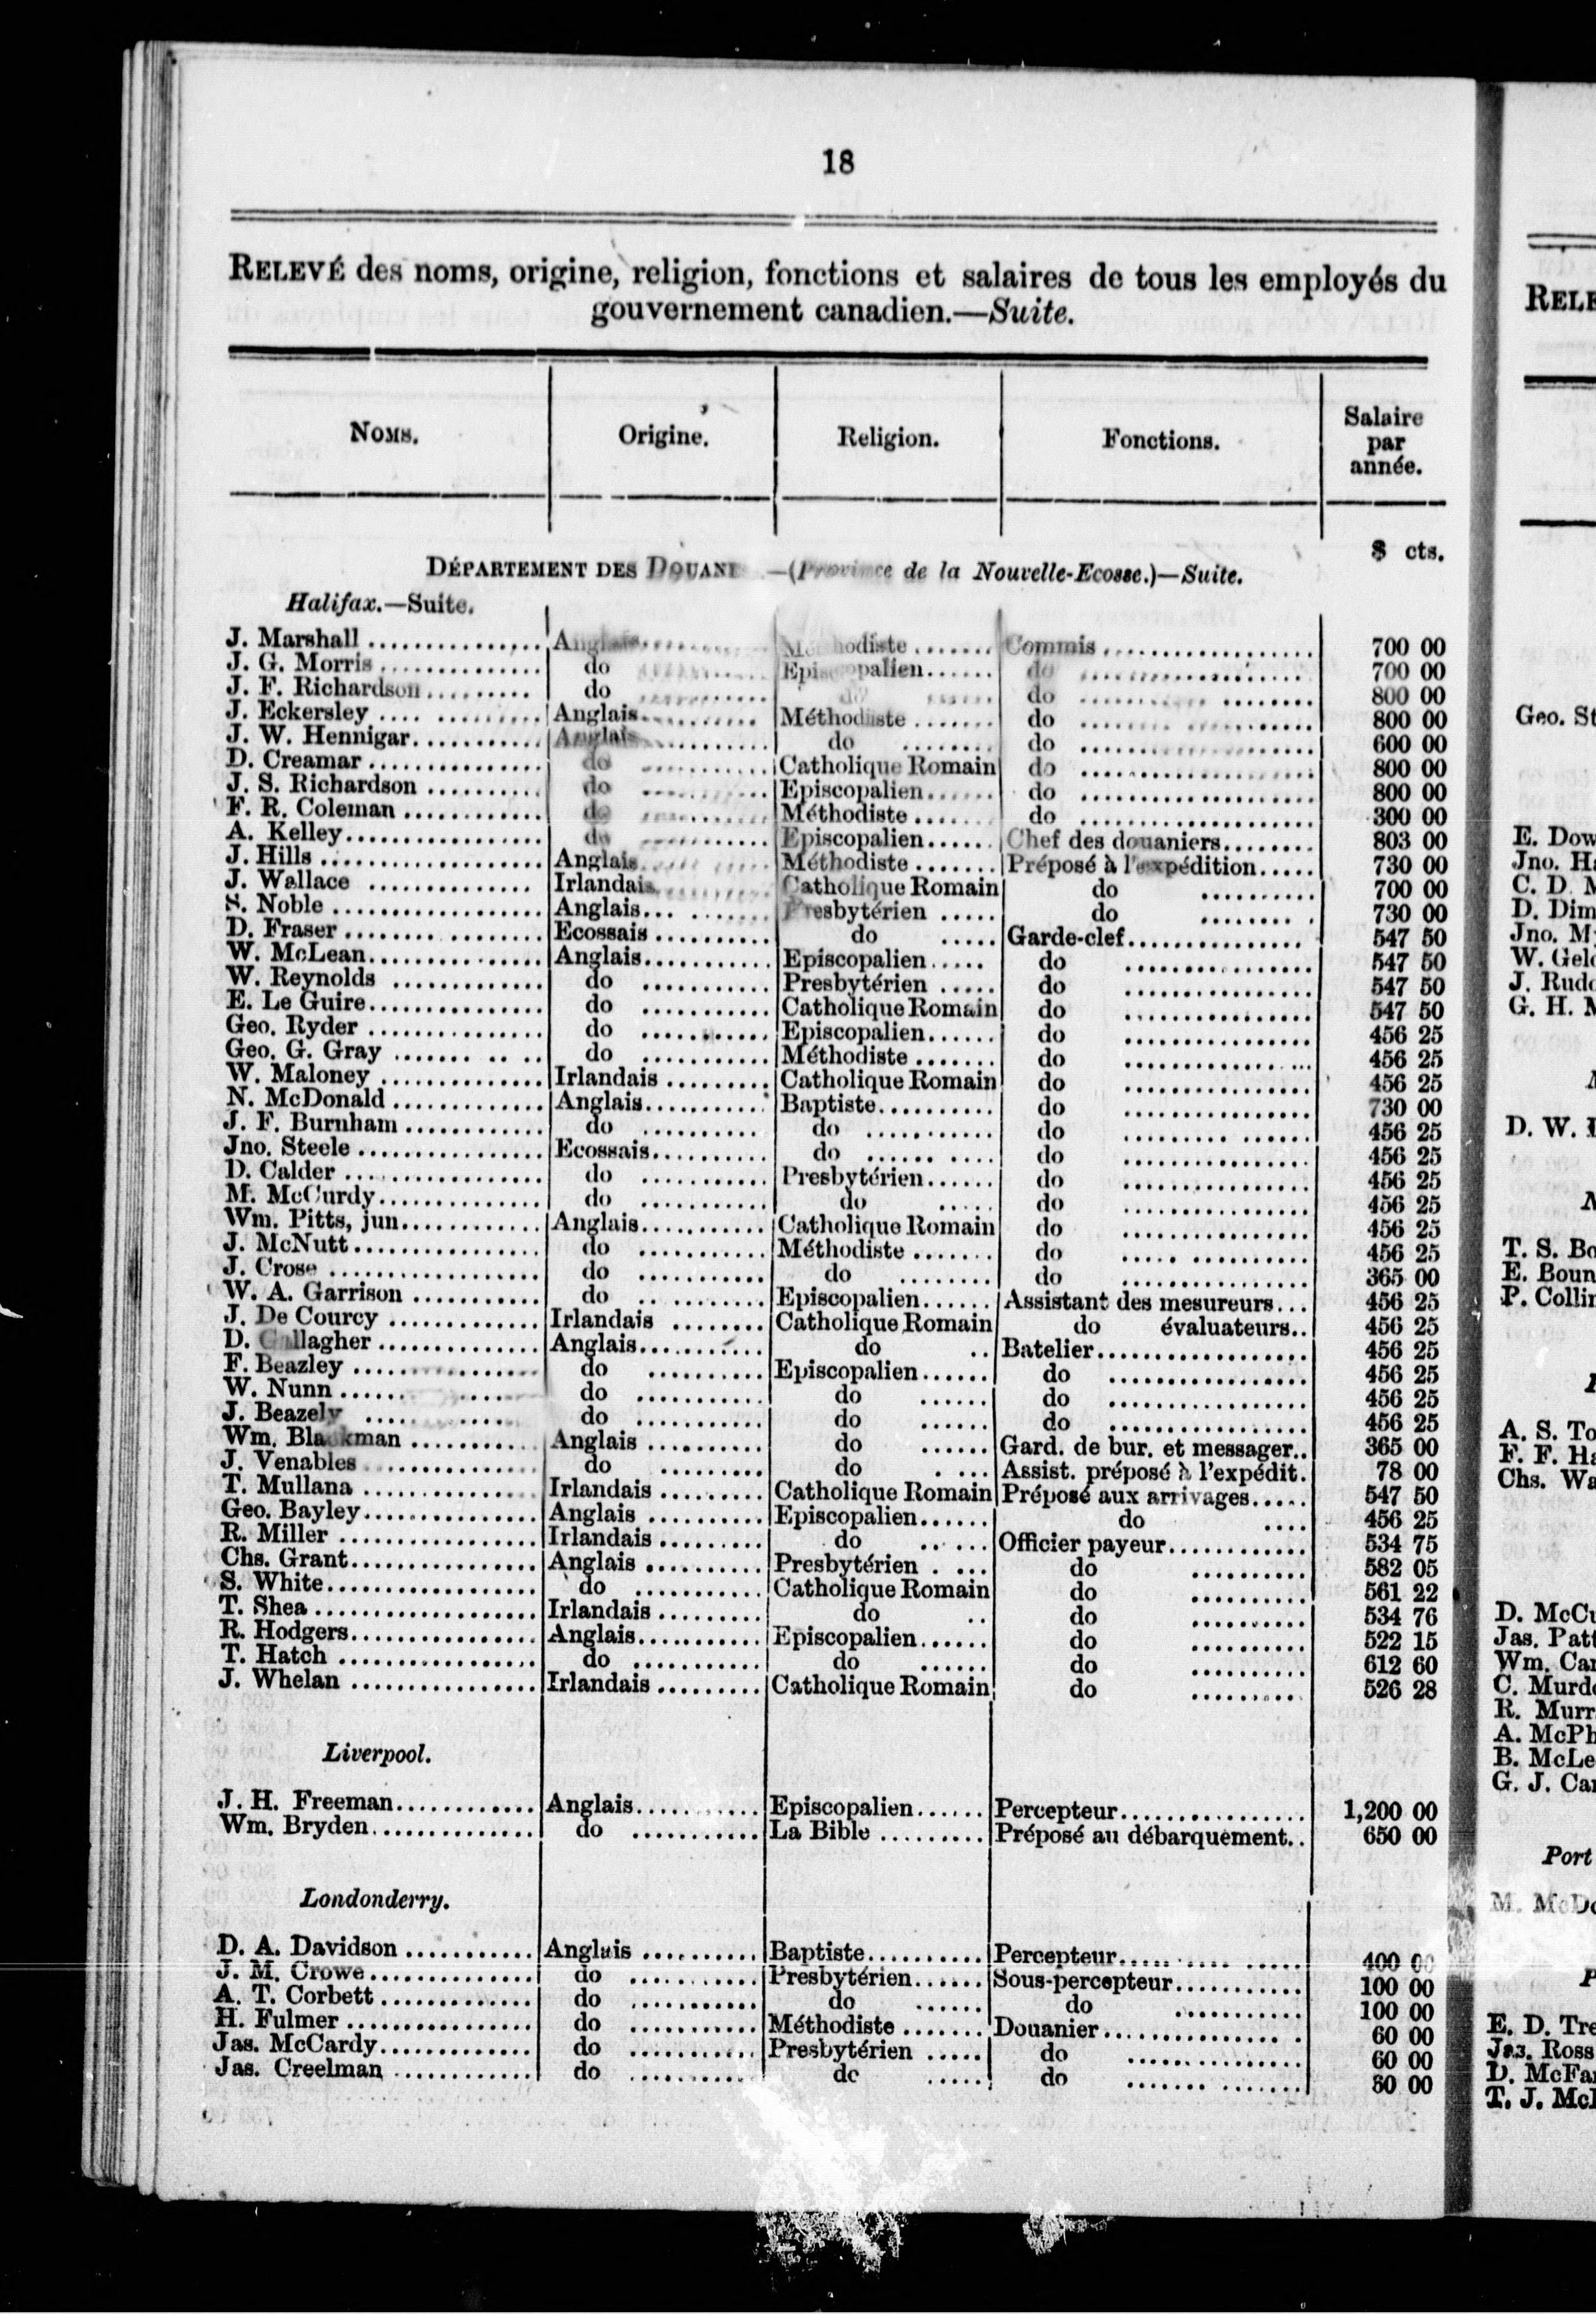 18
RELEVÉ des noms, origine, religion, fonctions et salaires de tous les employés du
gouvernement canadien.—Suite.
NOMS. Origine. Religion. Fonctions. Salaire par année.
$ cts.
DÉPARTEMENT DES DOUANE —(Province de la Nouvelle-Ecosse.)—Suite.
Halifax.—Suite.
J. Marshall Anglais Methodiste Commis 700 00
J. G. Morris do Episcopalien do 700 00
J. F. Richardson do do do 800 00
J. Eckersley Anglais Méthodiste do 800 00
J. W. Hennigar Anglais do do 600 00
D. Creamar do Catholique Romain do 800 00
J. S. Richardson do Episcopalien do 800 00
F. R. Coleman do Méthodiste do 300 00
A. Kelley do Episcopalien Chef des douaniers 803 00
J. Hills Anglais Méthodiste Préposé à l'expédition 730 00
J. Wallace Irlandais Catholique Romain do 700 00
S. Noble Anglais Presbytérien do 730 00
D. Fraser Ecossais do Garde-clef 547 50
W. McLean Anglais Episcopalien do 547 50
W. Reynolds do Presbytérien do 547 50
E. Le Guire do Catholique Romain do 547 50
Geo. Ryder do Episcopalien do 456 25
Geo. G. Gray do Méthodiste do 456 25
W. Maloney Irlandais Catholique Romain do 456 25
N. McDonald Anglais Baptiste do 730 00
J. F. Burnham do do do 456 25
Jno. Steele Ecossais do do 456 25
D. Calder do Presbytérien do 456 25
M. McCurdy do do do 456 25
Wm. Pitts, jun. Anglais Catholique Romain do 456 25
J. McNutt do Méthodiste do 456 25
J. Crose do do do 365 00
W. A. Garrison do Episcopalien Assistant des mesureurs 456 25
J. De Courcy Irlandais Catholique Romain do évaluateurs 456 25
D. Gallagher Anglais do Batelier 456 25
F. Beazley do Episcopalien do 456 25
W. Nunn do do do 456 25
J. Beazely do do do 456 25
Wm. Blackman Anglais do Gard. de bur. et messager 365 00
J. Venables do do Assist. préposé à l'expédit. 78 00
T. Mullana Irlandais Catholique Romain Préposé aux arrivages 547 50
Geo. Bayley Anglais Episcopalien do 456 25
R. Miller Irlandais do Officier payeur 534 75
Chs. Grant Anglais Presbytérien do 582 05
S. White do Catholique Romain do 561 22
T. Shea Irlandais do do 534 76
R. Hodgers Anglais Episcopalien do 522 15
T. Hatch do do do 612 60
J. Whelan Irlandais Catholique Romain do 526 28
Liverpool.
J. H. Freeman Anglais Episcopalien Percepteur 1,200 00
Wm. Bryden do La Bible Préposé au débarquement 650 00
Londonderry.
D. A. Davidson Anglais Baptiste Percepteur 400 00
J. M. Crowe do Presbytérien Sous-percepteur 100 00
A. T. Corbett do do do 100 00
H. Fulmer do Méthodiste Douanier 60 00
Jas. McCardy do Presbytérien do 60 00
Jas. Creelman do do do 00
RELE
Geo. St
E. Dow
Jno. Ha
C. D. M
D. Dim
Jno. M
W. Geld
J. Rudo
G. H. M
D. W.
T. S. Bo
E. Boun
P. Collin
A. S. To
F. F. Ha
Chs. Wa
D. McCu
Jas. Patt
Wm. Can
C. Murd
R. Murr
A. McPh
B. McLe
G. J. Ca
Port
M. McDo
E. D. Tre
Jas. Ross
D. McFa
T. J. Mc